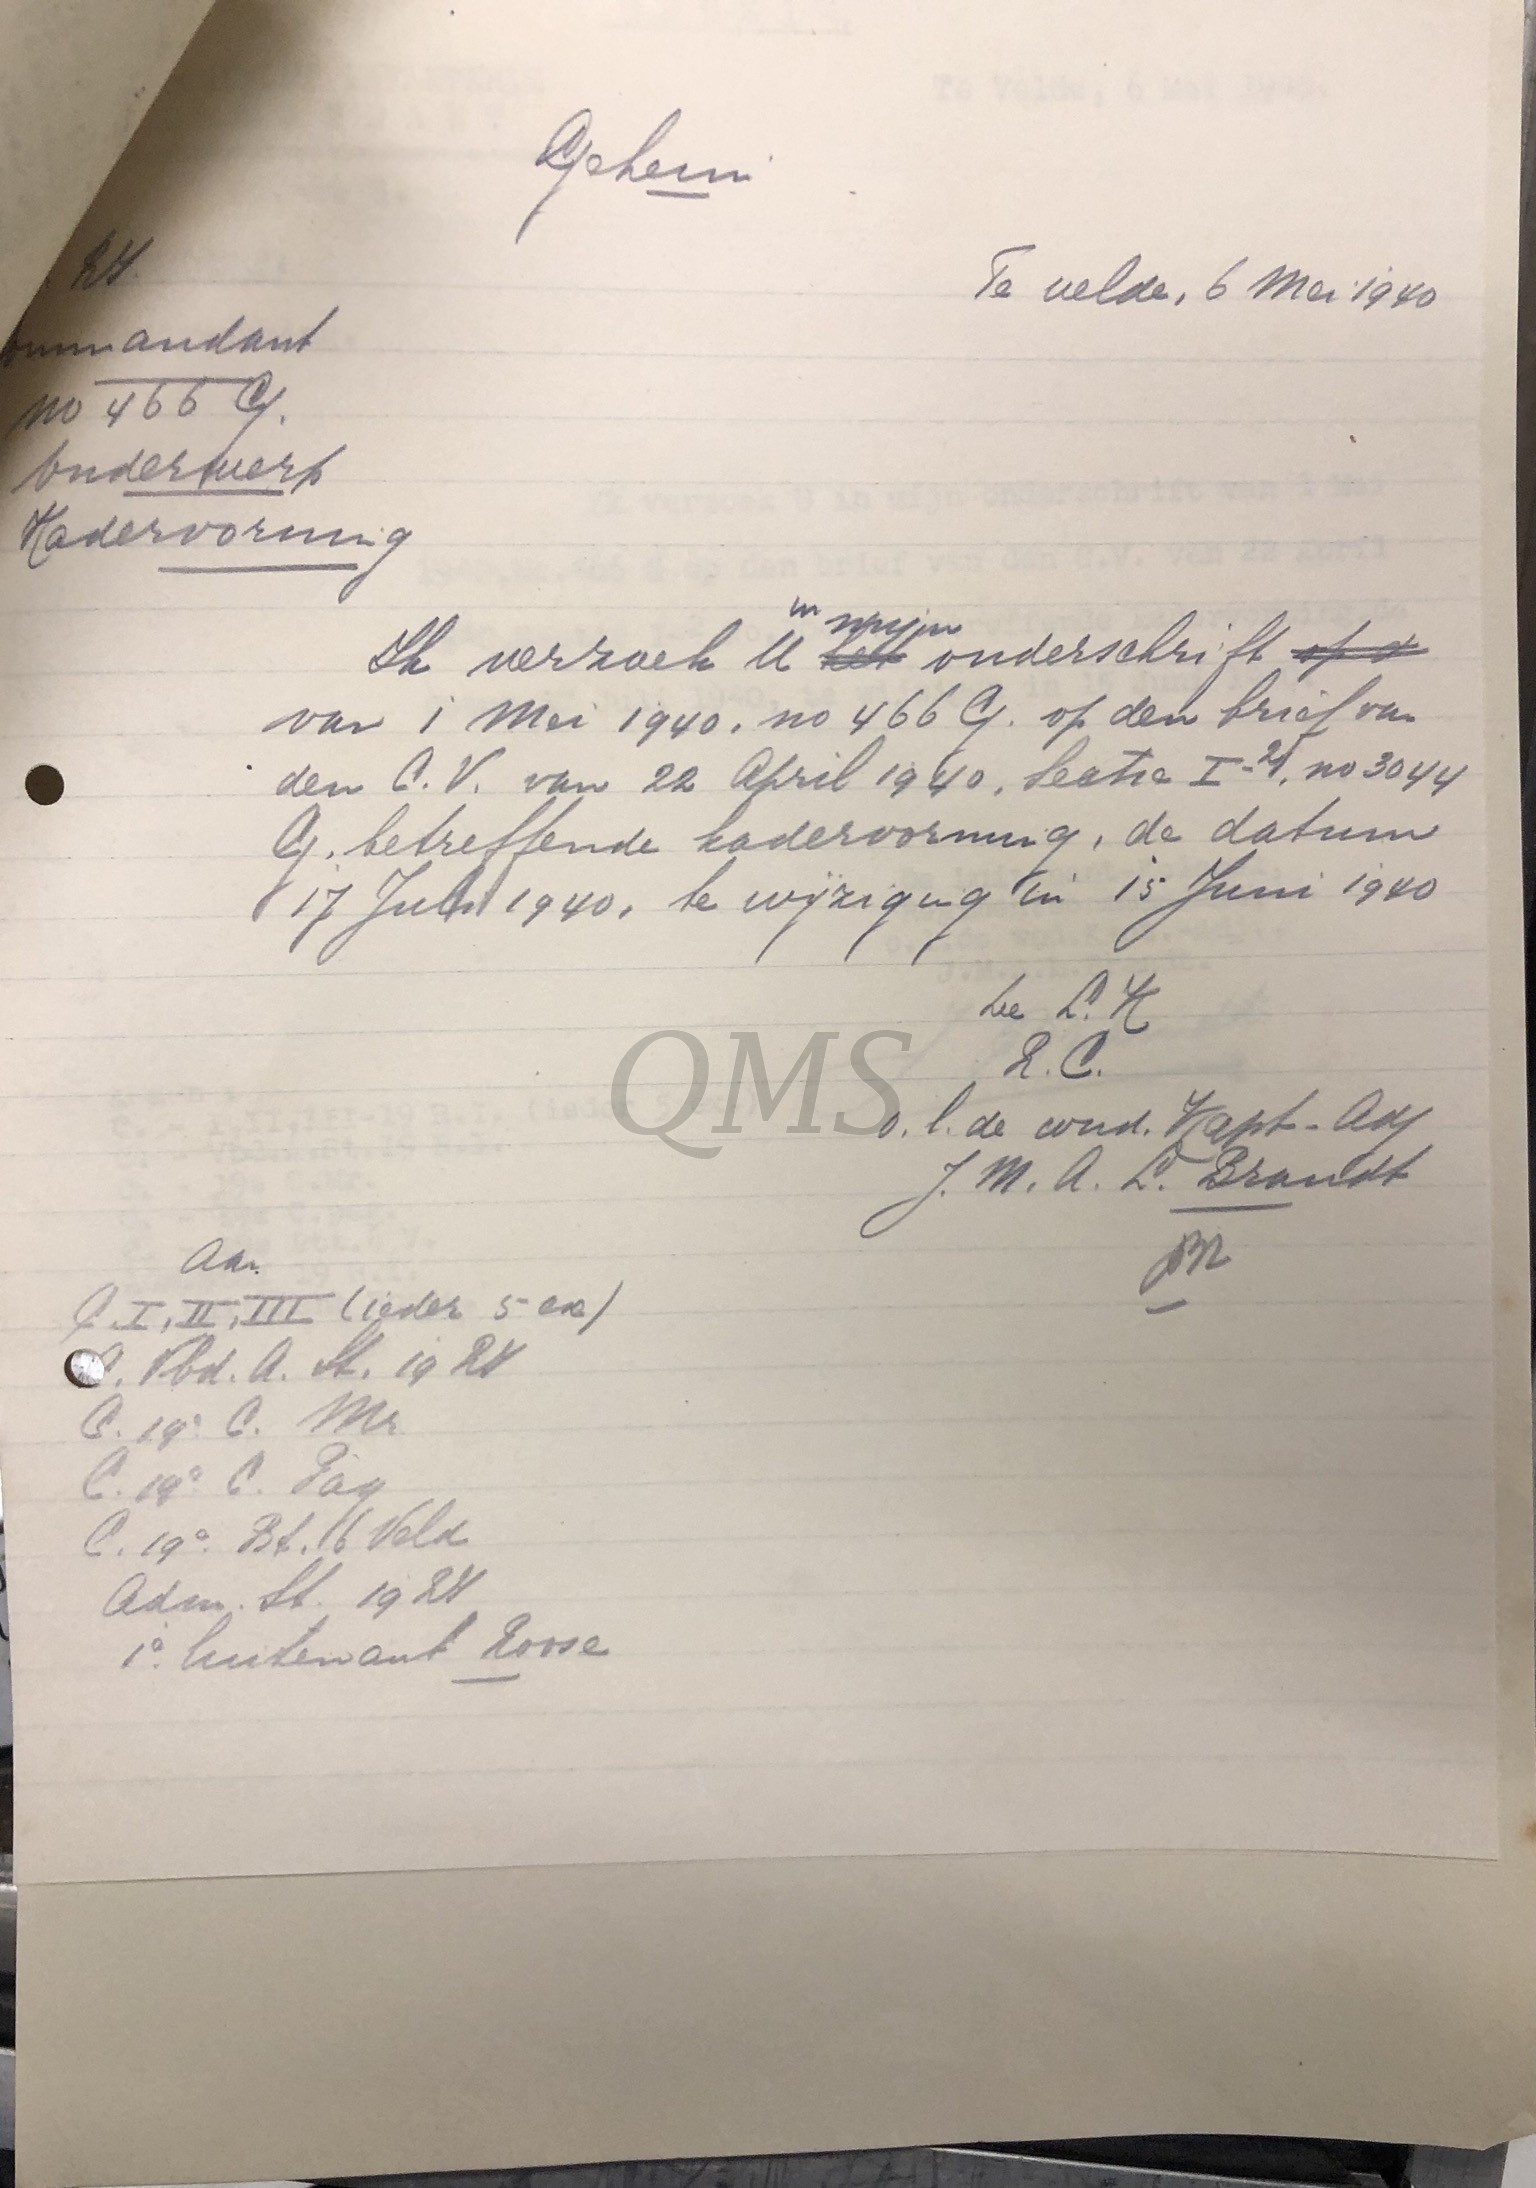 Geheim
R.I.
Te velde, 6 Mei 1940
ommandant
no 466 G.
Onderwerp
Kadervorming
in mijn
Ik verzoek U het onderschrift op d
van 1 Mei 1940, no 466 G. op den brief van
den C.V. van 22 April 1940, Sectie I-2f, no 3044
G. betreffende kadervorming, de datum
17 Juli 1940, te wijziging in 15 Juni 1940
De L.K
R.C.
o.l. de wnd. Kapt-Adj
J. M. A. L. Brandt
QMS
Br
Aan
C. I, II, III (ieder 5 ex)
C. Vbd. A. St. 19 R.I.
C. 19e C. Mr
C. 19e C. Pag
C. 19e Bt. 6 Veld
Adm. St. 19 R.I.
1e luitenant Roose